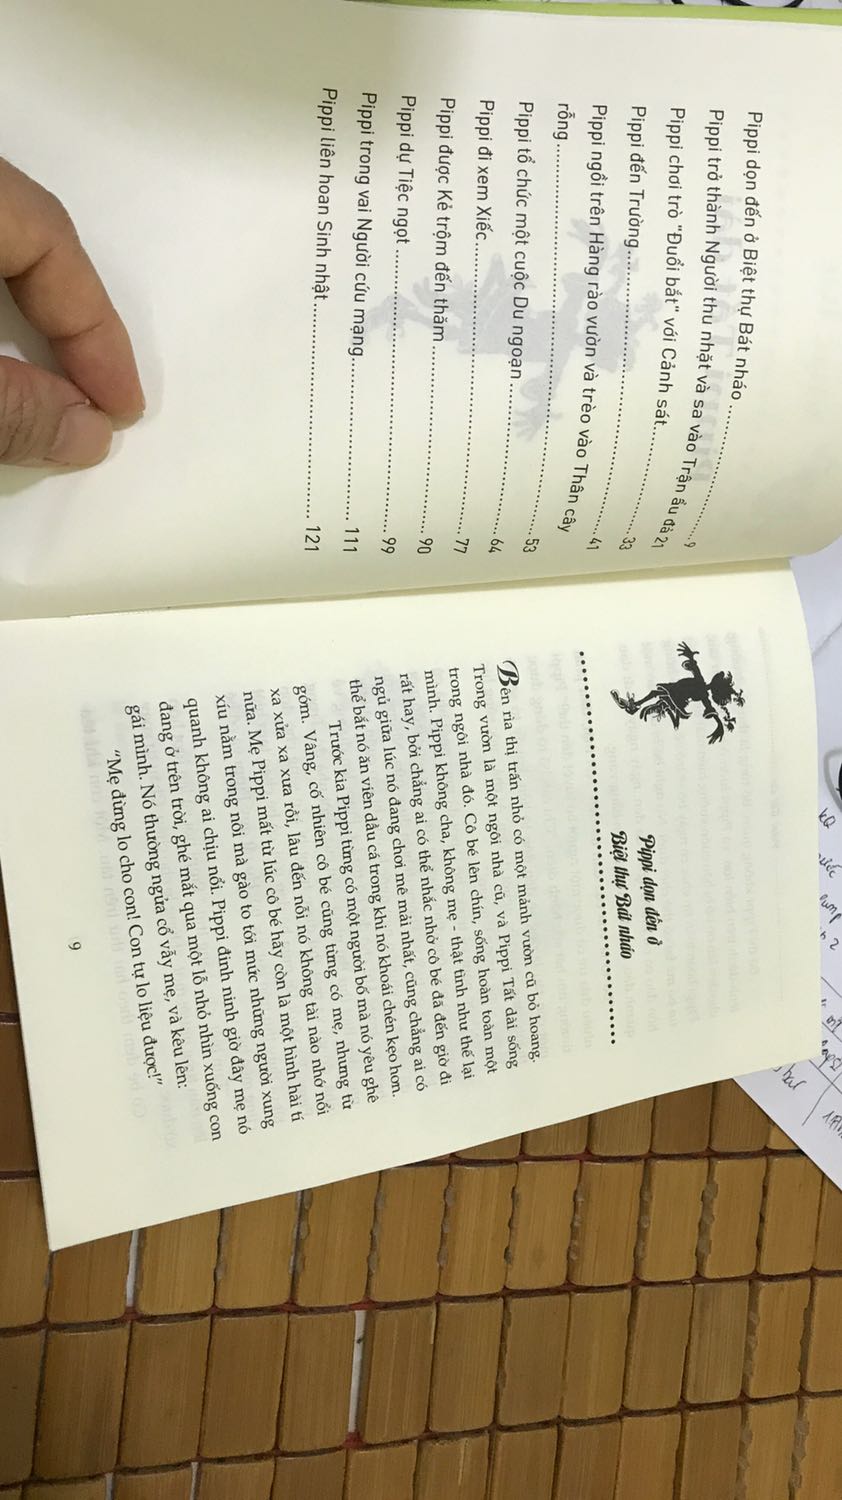 Pippi dọn đến ở Biệt thự Bát nháo ........................................ 9
Pippi trở thành Người thu nhặt và sa vào Trận ẩu đả 21
Pippi chơi trò "Đuổi bắt" với Cảnh sát........................ 33
Pippi đến Trường................................................................ 41
Pippi ngồi trên Hàng rào vườn và trèo vào Thân cây
rỗng ........................................................................................ 53
Pippi tổ chức một cuộc Du ngoạn ................................ 64
Pippi đi xem Xiếc................................................................ 77
Pippi được Kẻ trộm đến thăm ........................................ 90
Pippi dự Tiệc ngọt ............................................................ 99
Pippi trong vai Người cứu mạng.................................... 111
Pippi liên hoan Sinh nhật................................................ 121
Pippi dọn đến ở
Biệt thự Bát nháo
Bên rìa thị trấn nhỏ có một mảnh vườn cũ bỏ hoang.
Trong vườn là một ngôi nhà cũ, và Pippi Tất dài sống
trong ngôi nhà đó. Cô bé lên chín, sống hoàn toàn một
mình. Pippi không cha, không mẹ - thật tình như thế lại
rất hay, bởi chẳng ai có thể nhắc nhở cô bé đã đến giờ đi
ngủ giữa lúc nó đang chơi mê mải nhất, cũng chẳng ai có
thể bắt nó ăn viên dầu cá trong khi nó khoái chén kẹo hơn.
Trước kia Pippi từng có một người bố mà nó yêu ghê
gớm. Vâng, cố nhiên cô bé cũng từng có mẹ, nhưng từ
xa xửa xa xưa rồi, lâu đến nỗi nó không tài nào nhớ nổi
nữa. Mẹ Pippi mất từ lúc cô bé hãy còn là một hình hài tí
xíu nằm trong nôi mà gào to tới mức những người xung
quanh không ai chịu nổi. Pippi đinh ninh giờ đây mẹ nó
đang ở trên trời, ghé mắt qua một lỗ nhỏ nhìn xuống con
gái mình. Nó thường ngửa cổ vẫy mẹ, và kêu lên:
"Mẹ đừng lo cho con! Con tự lo liệu được!"
9